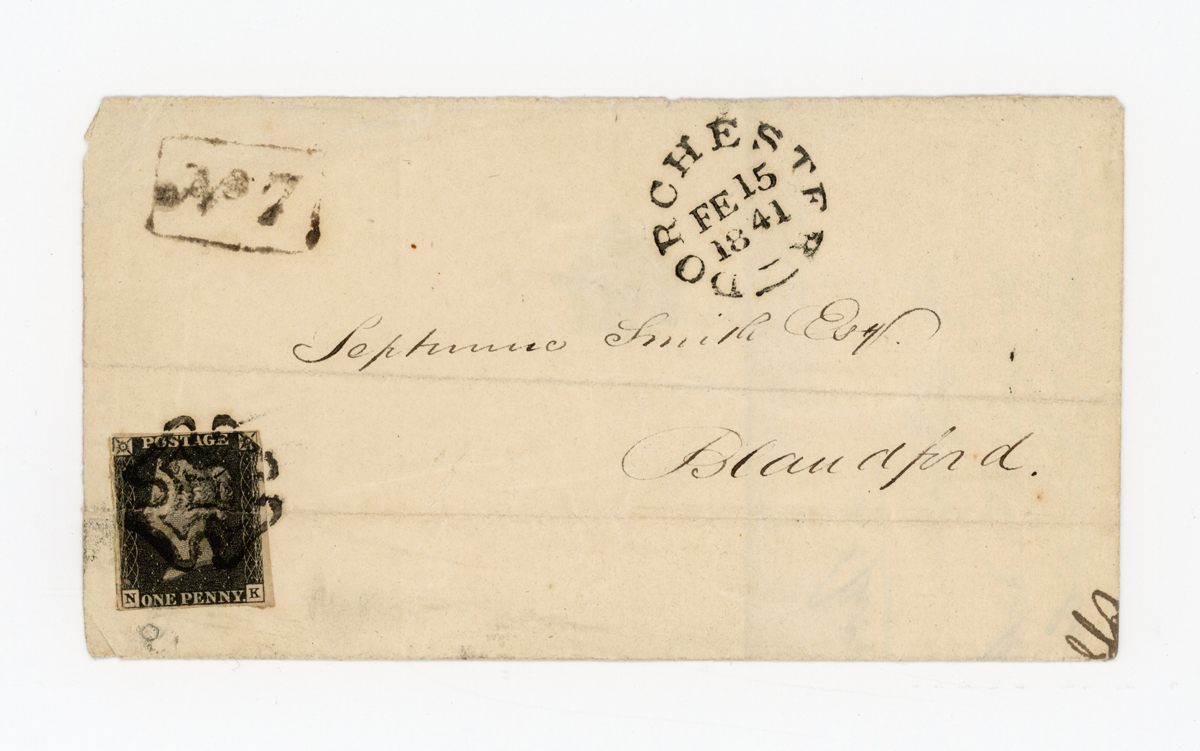 No 7
DORCHESTER
FE 15
1841
Septimus Smith Esqr.
Blandford.
POSTAGE
N ONE PENNY. K